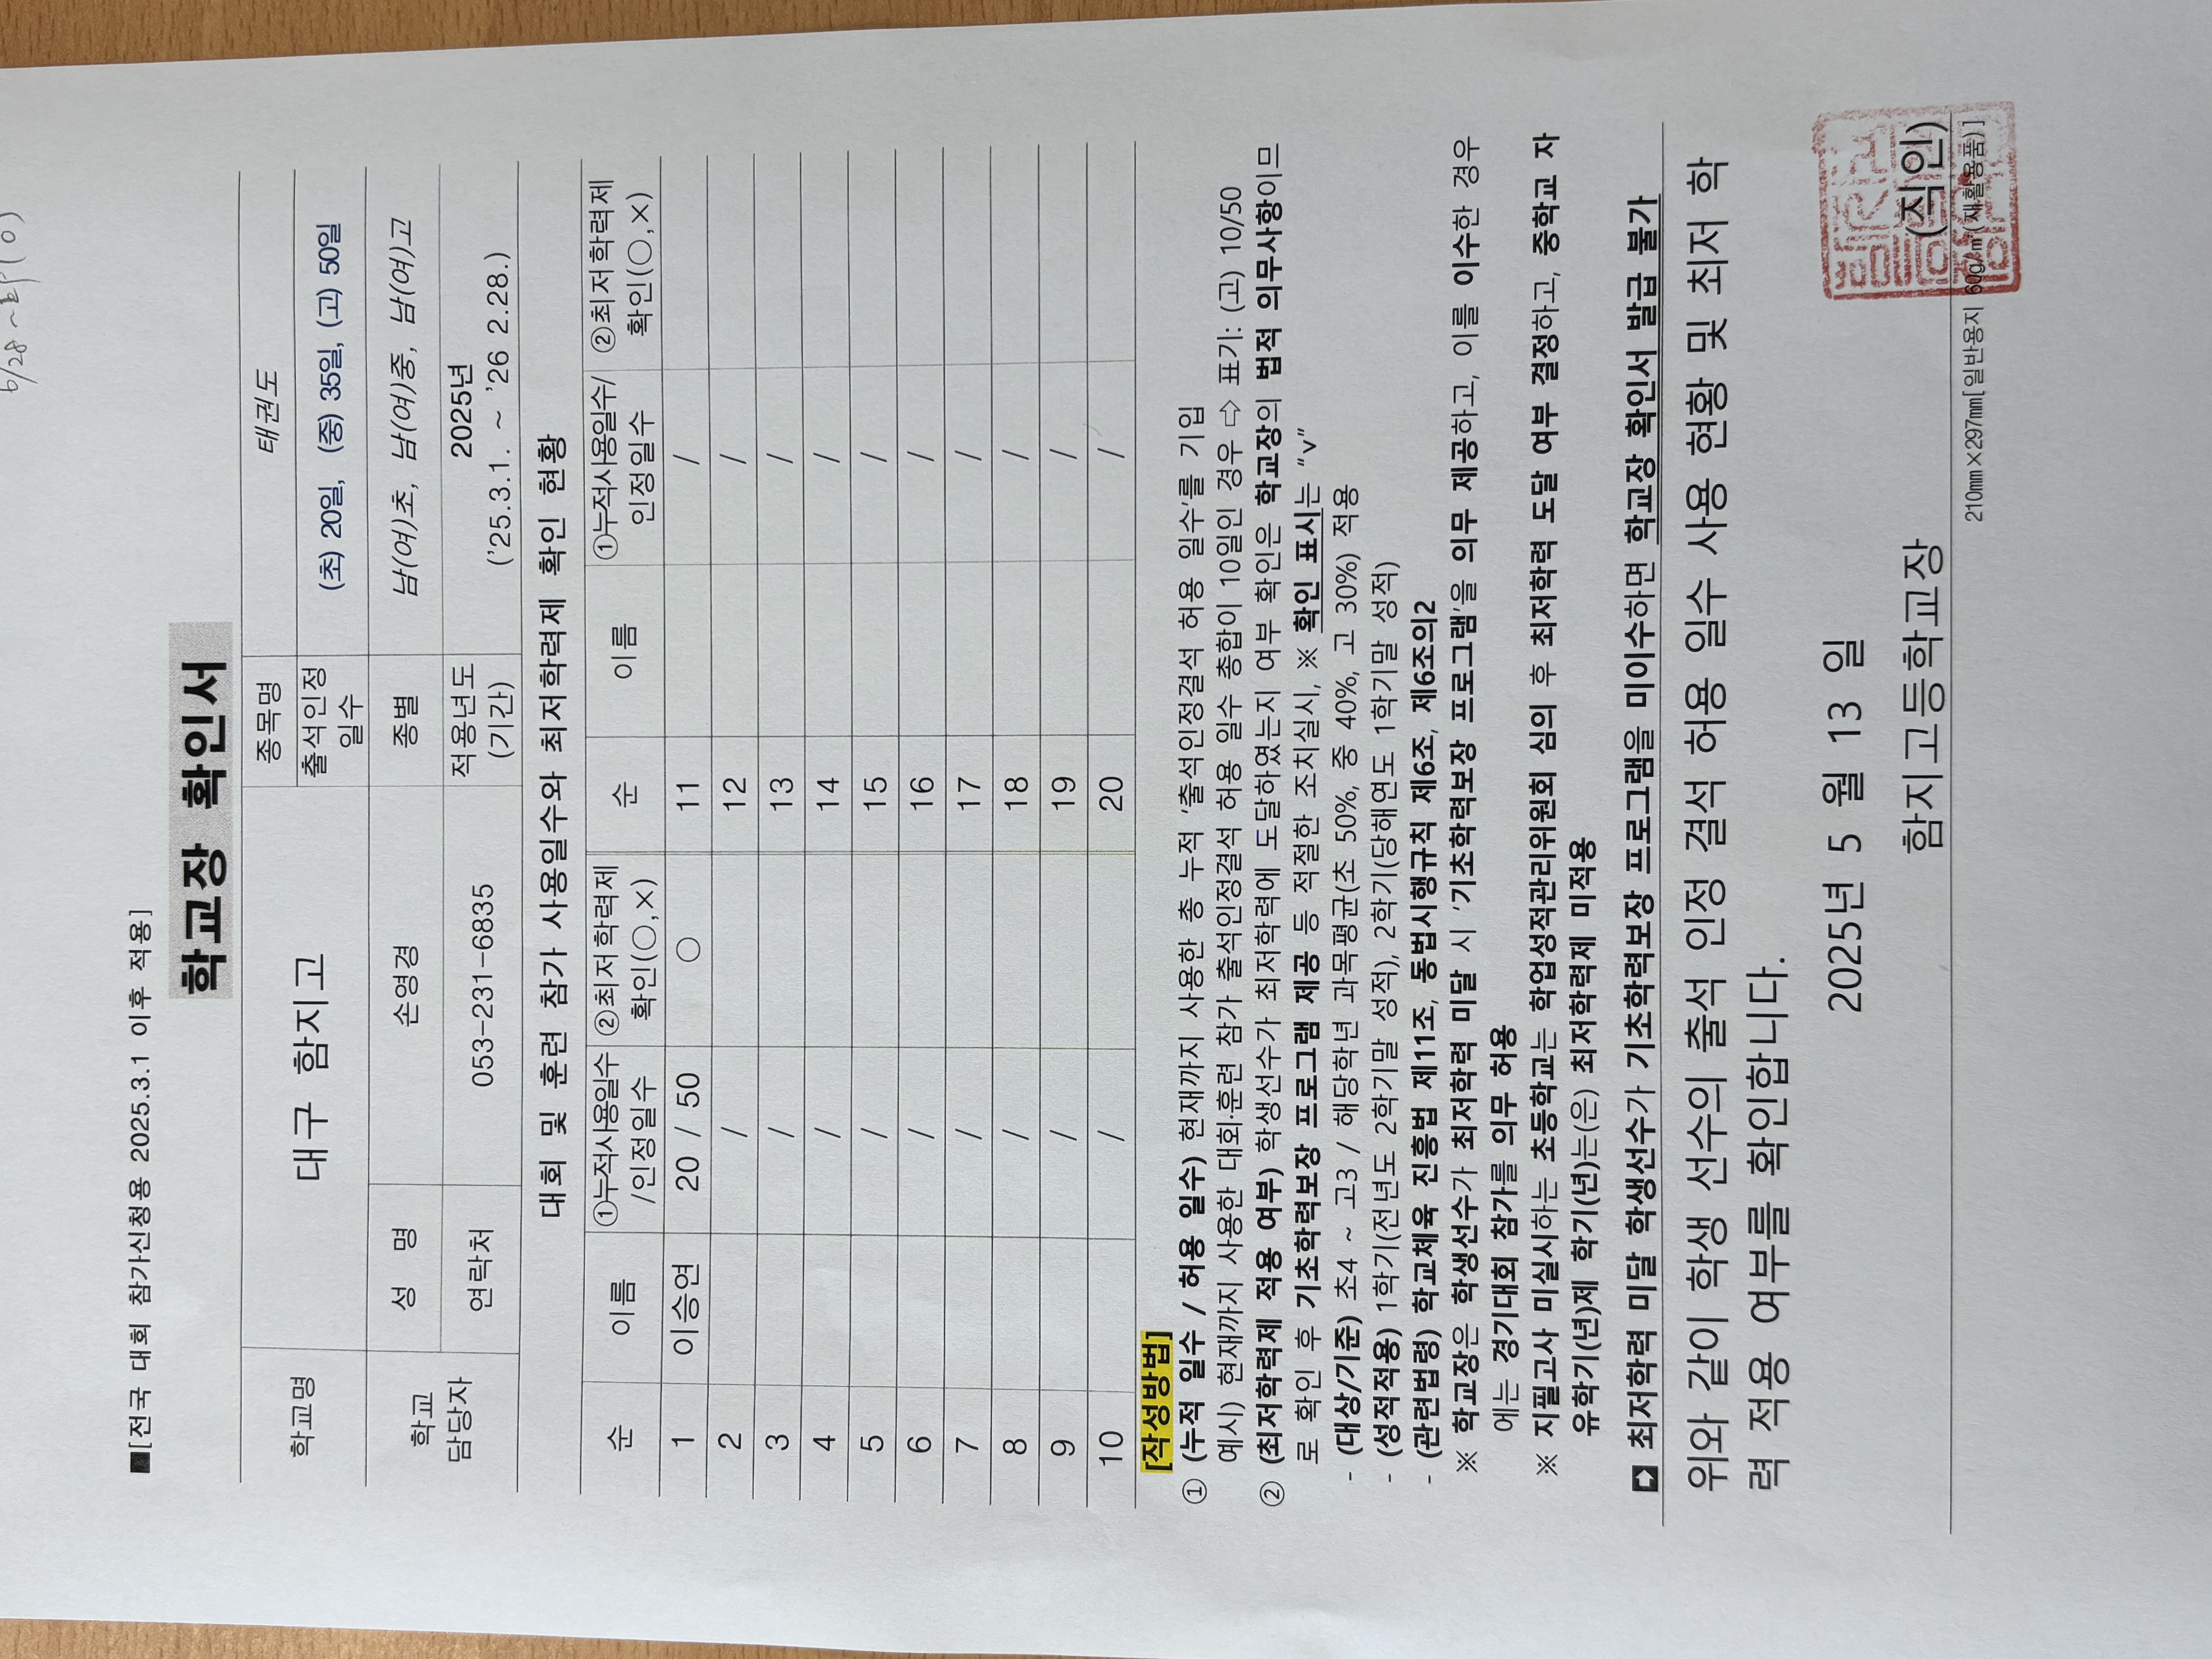 6/28 ~
■[전국 대회 참가신청용 2025.3.1 이후 적용]
학교장 확인서
학교명 대구 함지고 종목명 태권도
출석인정 일수 (초) 20일, (중) 35일, (고) 50일
학교 담당자 성 명 손영경 종별 남(여)초, 남(여)중, 남(여)고
연락처 053-231-6835 적용년도 (기간) 2025년 ('25.3.1. ~ '26 2.28.)
대회 및 훈련 참가 사용일수와 최저학력제 확인 현황
순 이름 ①누적사용일수 /인정일수 ②최저학력제 확인(○,×) 순 이름 ①누적사용일수/ 인정일수 ②최저학력제 확인(○,×)
1 이승연 20 / 50 ○ 11 /
2 / 12 /
3 / 13 /
4 / 14 /
5 / 15 /
6 / 16 /
7 / 17 /
8 / 18 /
9 / 19 /
10 / 20 /
[작성방법]
① (누적 일수 / 허용 일수) 현재까지 사용한 총 누적 '출석인정결석 허용 일수'를 기입
예시) 현재까지 사용한 대회·훈련 참가 출석인정결석 허용 일수 총합이 10일인 경우 ⇨ 표기: (고) 10/50
② (최저학력제 적용 여부) 학생선수가 최저학력에 도달하였는지 여부 확인은 학교장의 법적 의무사항이므
로 확인 후 기초학력보장 프로그램 제공 등 적절한 조치실시, ※ 확인 표시는 "v"
- (대상/기준) 초4 ~ 고3 / 해당학년 과목평균(초 50%, 중 40%, 고 30%) 적용
- (성적적용) 1학기(전년도 2학기말 성적), 2학기(당해연도 1학기말 성적)
- (관련법령) 학교체육 진흥법 제11조, 동법시행규칙 제6조, 제6조의2
※ 학교장은 학생선수가 최저학력 미달 시 '기초학력보장 프로그램'을 의무 제공하고, 이를 이수한 경우
에는 경기대회 참가를 의무 허용
※ 지필고사 미실시하는 초등학교는 학업성적관리위원회 심의 후 최저학력 도달 여부 결정하고, 중학교 자
유학기(년)제 학기(년)는(은) 최저학력제 미적용
➡ 최저학력 미달 학생선수가 기초학력보장 프로그램을 미이수하면 학교장 확인서 발급 불가
위와 같이 학생 선수의 출석 인정 결석 허용 일수 사용 현황 및 최저 학
력 적용 여부를 확인합니다.
2025년 5 월 13 일
함지고등학교장 (직인)
210㎜×297㎜[일반용지 60g/㎡(재활용품)]